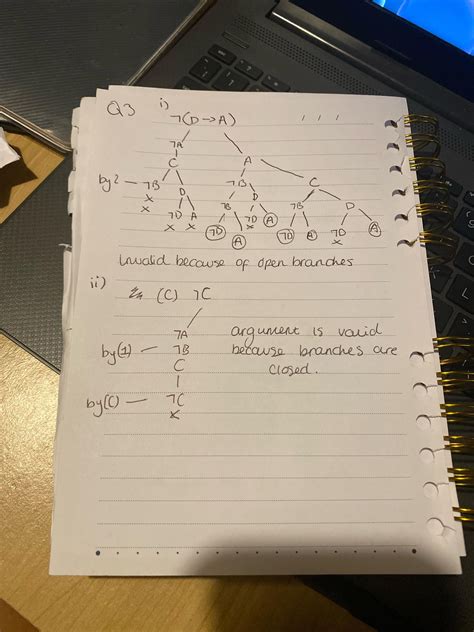 Q3 i) ¬(D→A)
¬A
C A
by 2 — ¬B D ¬B D C
x ¬D A ¬B ¬D A ¬B D
x x x ¬D A x ¬D A ¬D A
x
invalid because of open branches
ii) (C) ¬C
¬A argument is valid
by(1) — ¬B because branches are
C closed.
by(C) — ¬C
x